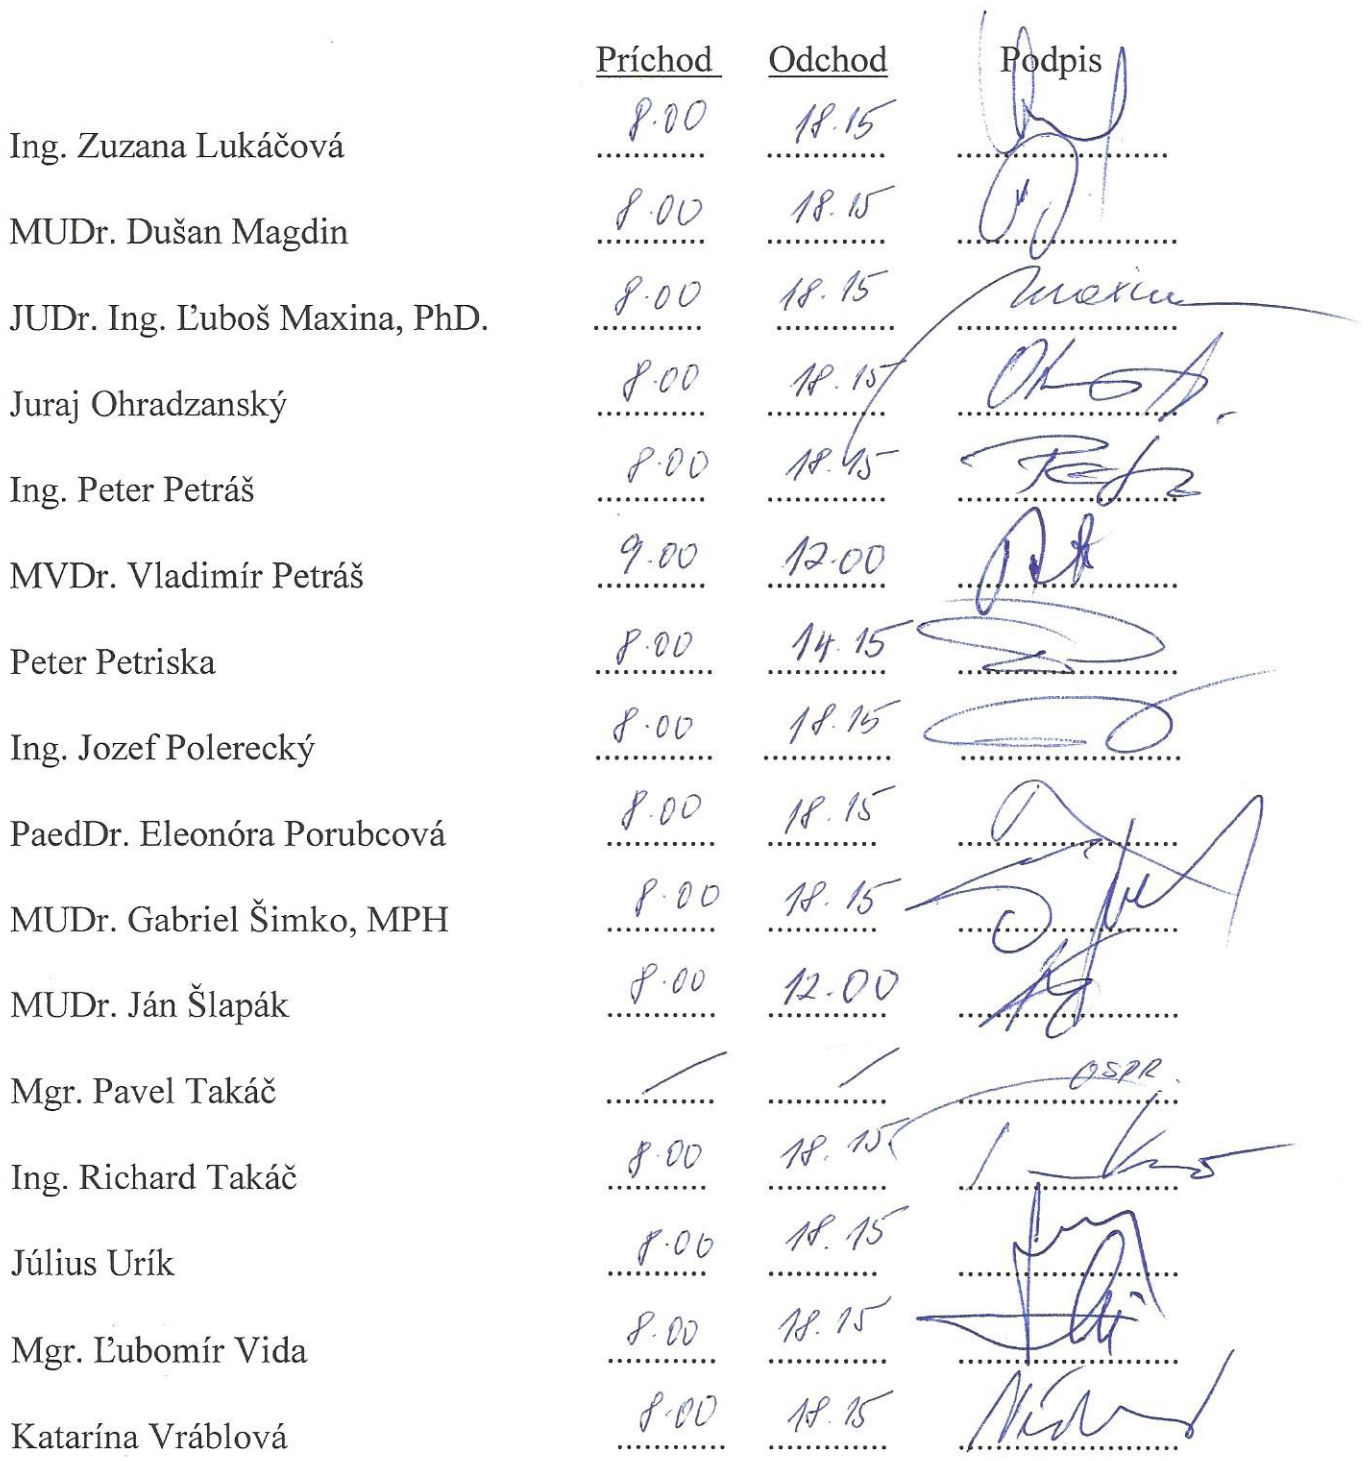 Príchod Odchod Podpis
Ing. Zuzana Lukáčová 8.00 18.15
MUDr. Dušan Magdin 8.00 18.15
JUDr. Ing. Ľuboš Maxina, PhD. 8.00 18.15
Juraj Ohradzanský 8.00 18.15
Ing. Peter Petráš 8.00 18.15
MVDr. Vladimír Petráš 9.00 12.00
Peter Petriska 8.00 14.15
Ing. Jozef Polerecký 8.00 18.15
PaedDr. Eleonóra Porubcová 8.00 18.15
MUDr. Gabriel Šimko, MPH 8.00 18.15
MUDr. Ján Šlapák 8.00 12.00
Mgr. Pavel Takáč / / OSPR.
Ing. Richard Takáč 8.00 18.15
Július Urík 8.00 18.15
Mgr. Ľubomír Vida 8.00 18.15
Katarína Vráblová 8.00 18.15